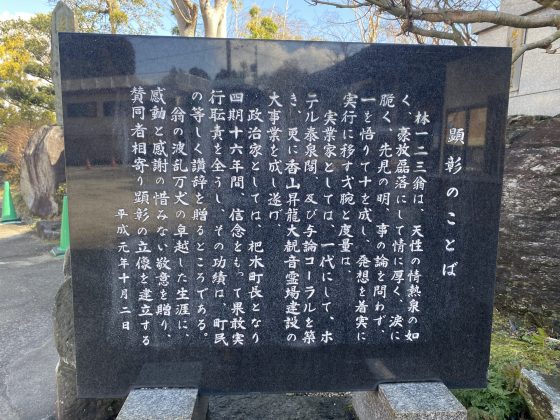 顕彰のことば
林一二三翁は、天性の情熱泉の如
く、豪放磊落にして情に厚く、涙に
脆く、先見の明、事の論を問わず、
一を悟りて十を成し、発想を着実に
実行に移す才腕と度量は、
実業家としては、一代にして、ホ
テル泰泉閣、及び与論コーラルを築
き、更に香山昇龍大観音霊場建設の
大事業を成し遂げ、
政治家としては、杷木町長となり
四期十六年間、信念をもって果敢実
行耘責を全うし、その功績は、町民
の等しく讃辞を贈るところである。
翁の波乱万丈の卓越した生涯に、
感動と感謝の惜みない敬意を贈り、
賛同者相寄り顕彰の立像を建立する
平成元年十月二日